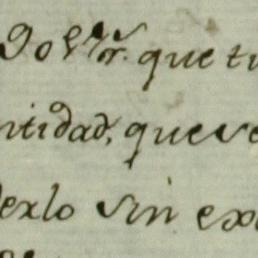 que tu
ntidad, que ve
dexlo sin ex